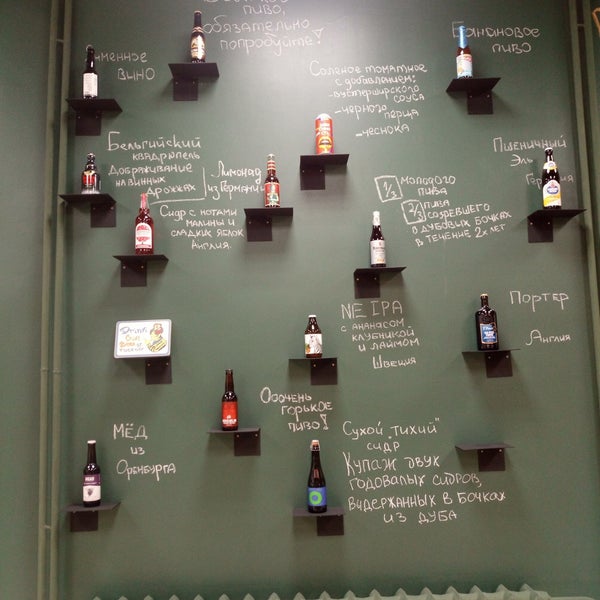 пиво,
обязательно
попробуйте!
Банановое
пиво
Ячменное
вино
Соленое томатное
с добавлением:
-вустерширского
соуса
-черного
перца
-чеснока
Бельгийский
квадрюпель
Дображивание
на винных
дрожжах
Лимонад
из Германии
Пшеничный
Эль
Германия
1/3 молодого
пива
2/3 пива
созревшего
в дубовых бочках
в течение 2х лет
Сидр с нотами
малины и
сладких яблок
Англия.
NE IPA
с ананасом
клубникой
и лаймом
Швеция
Портер
Англия
Оооочень
горькое
пиво!
Мёд
из
Оренбурга
Сухой "тихий"
сидр
Купаж двух
годовалых сидров,
выдержанных в бочках
из дуба